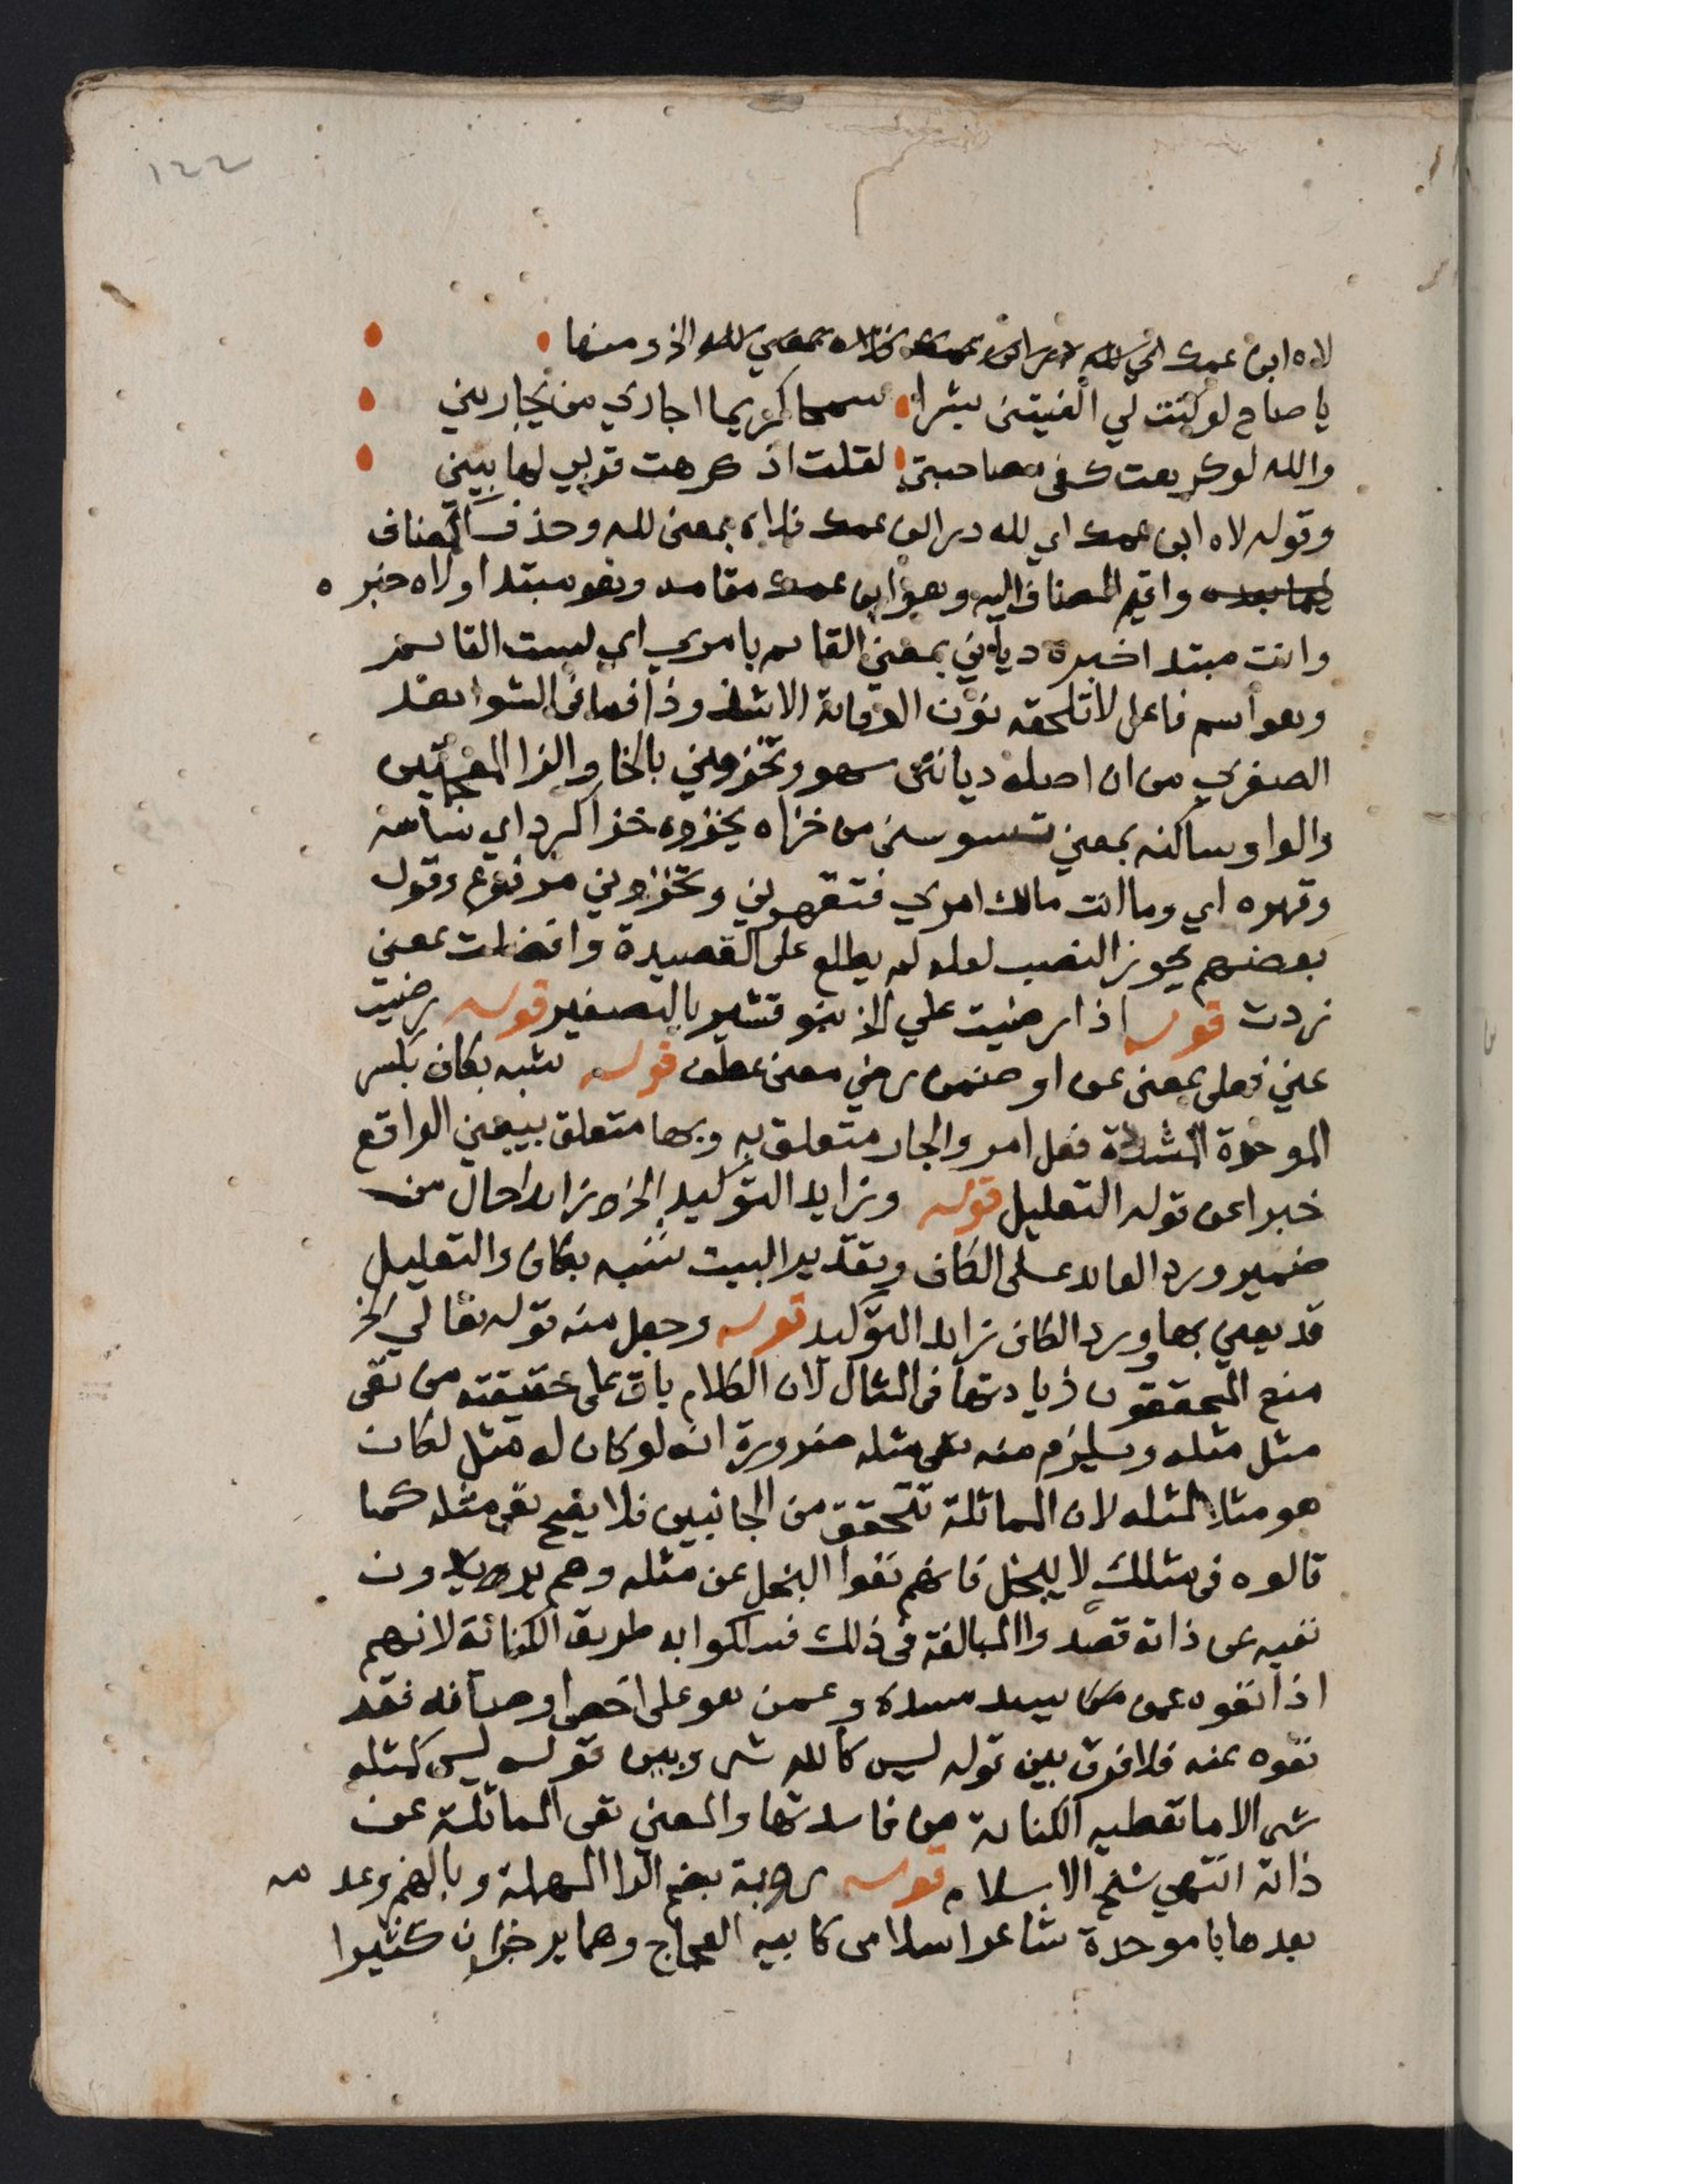 ١٤٤
لاه ابن عمك اي لله در ابن عمك فلاه بمعني لله الخ ومنها
يا صاح لو كنت لي الفيتنى بشرا سمحا كريما اجازي من يجازيني
والله لو كرهت كفى مصاحبتي لقلت اذ كرهت قربي لها بيني
وقوله لاه ابن عمك اي لله در ابن عمك فلاه بمعنى لله وحذف المضاف
لما بعده واقيم المضاف اليه وهو ابن عمك مقامه وهو مبتدا ولاه خبره
وانت مبتدا خبره دياني بمعني القايم بامري اي لست القايم
وهو اسم فاعل لا تلحقه نون الوقاية الا شذوذا فما فى الشواهد
الصغري من ان اصله ديانني سهو وتخزوني بالخا والزا المعجمتين
والواو ساكنه بمعني تسوسنى من خزاه يخزوه خزا كرد اي ساسه
وقهره اي وما انت مالك امري فتقهرني وتخزوني مرفوع وقول
بعضهم يجوز النصب لعله لم يطلع على القصيدة وافضلت بمعني
زدت قوله اذا رضيت علي الخ بنو قشير بالتصغير قوله رضيت
عني فعلى بمعنى عن او ضمن رضي معنى عطف قوله شبه بكاف بكسر
الموحدة المشددة فعل امر والجار متعلق به وبها متعلق بيعني الواقع
خبرا عن قوله التعليل قوله وزايد التوكيد الخ زايد احال من
ضمير ورد العايد على الكاف وتقدير البيت شبه بكاف والتعليل
قد يعني بها وورد الكاف زايد التوكيد قوله وجعل منه قوله تعالي الخ
منع المحققون زيادتها فى المثال لان الكلام باق على حقيقته من نفى
مثل مثله ويلزم منه نفى مثله ضرورة انه لو كان له مثل لكان
هو مثلا لمثله لان المماثلة تتحقق من الجانبين فلا يصح نفى مثله كما
قالوه فى مثلك لا يبخل فانهم نفوا البخل عن مثله وهم يريدون
نفيه عن ذاته قصدوا المبالغة فى ذلك فسلكوا به طريق الكناية لانهم
اذا نفوه عمن يسد مسده وعمن هو على اخص اوصافه فقد
نفوه عنه فلا فرق بين قوله ليس كالله شى وبين قوله ليس كمثله
شى الا ما تعطيه الكناية من فايدتها والمعني نفى المماثلة عن
ذاته انتهي شيخ الاسلام قوله روبة بضم الرا المهملة وبالهمز وعدمه
بعدها با موحدة شاعر اسلامى كابيه العجاج وهما يرجزان كثيرا